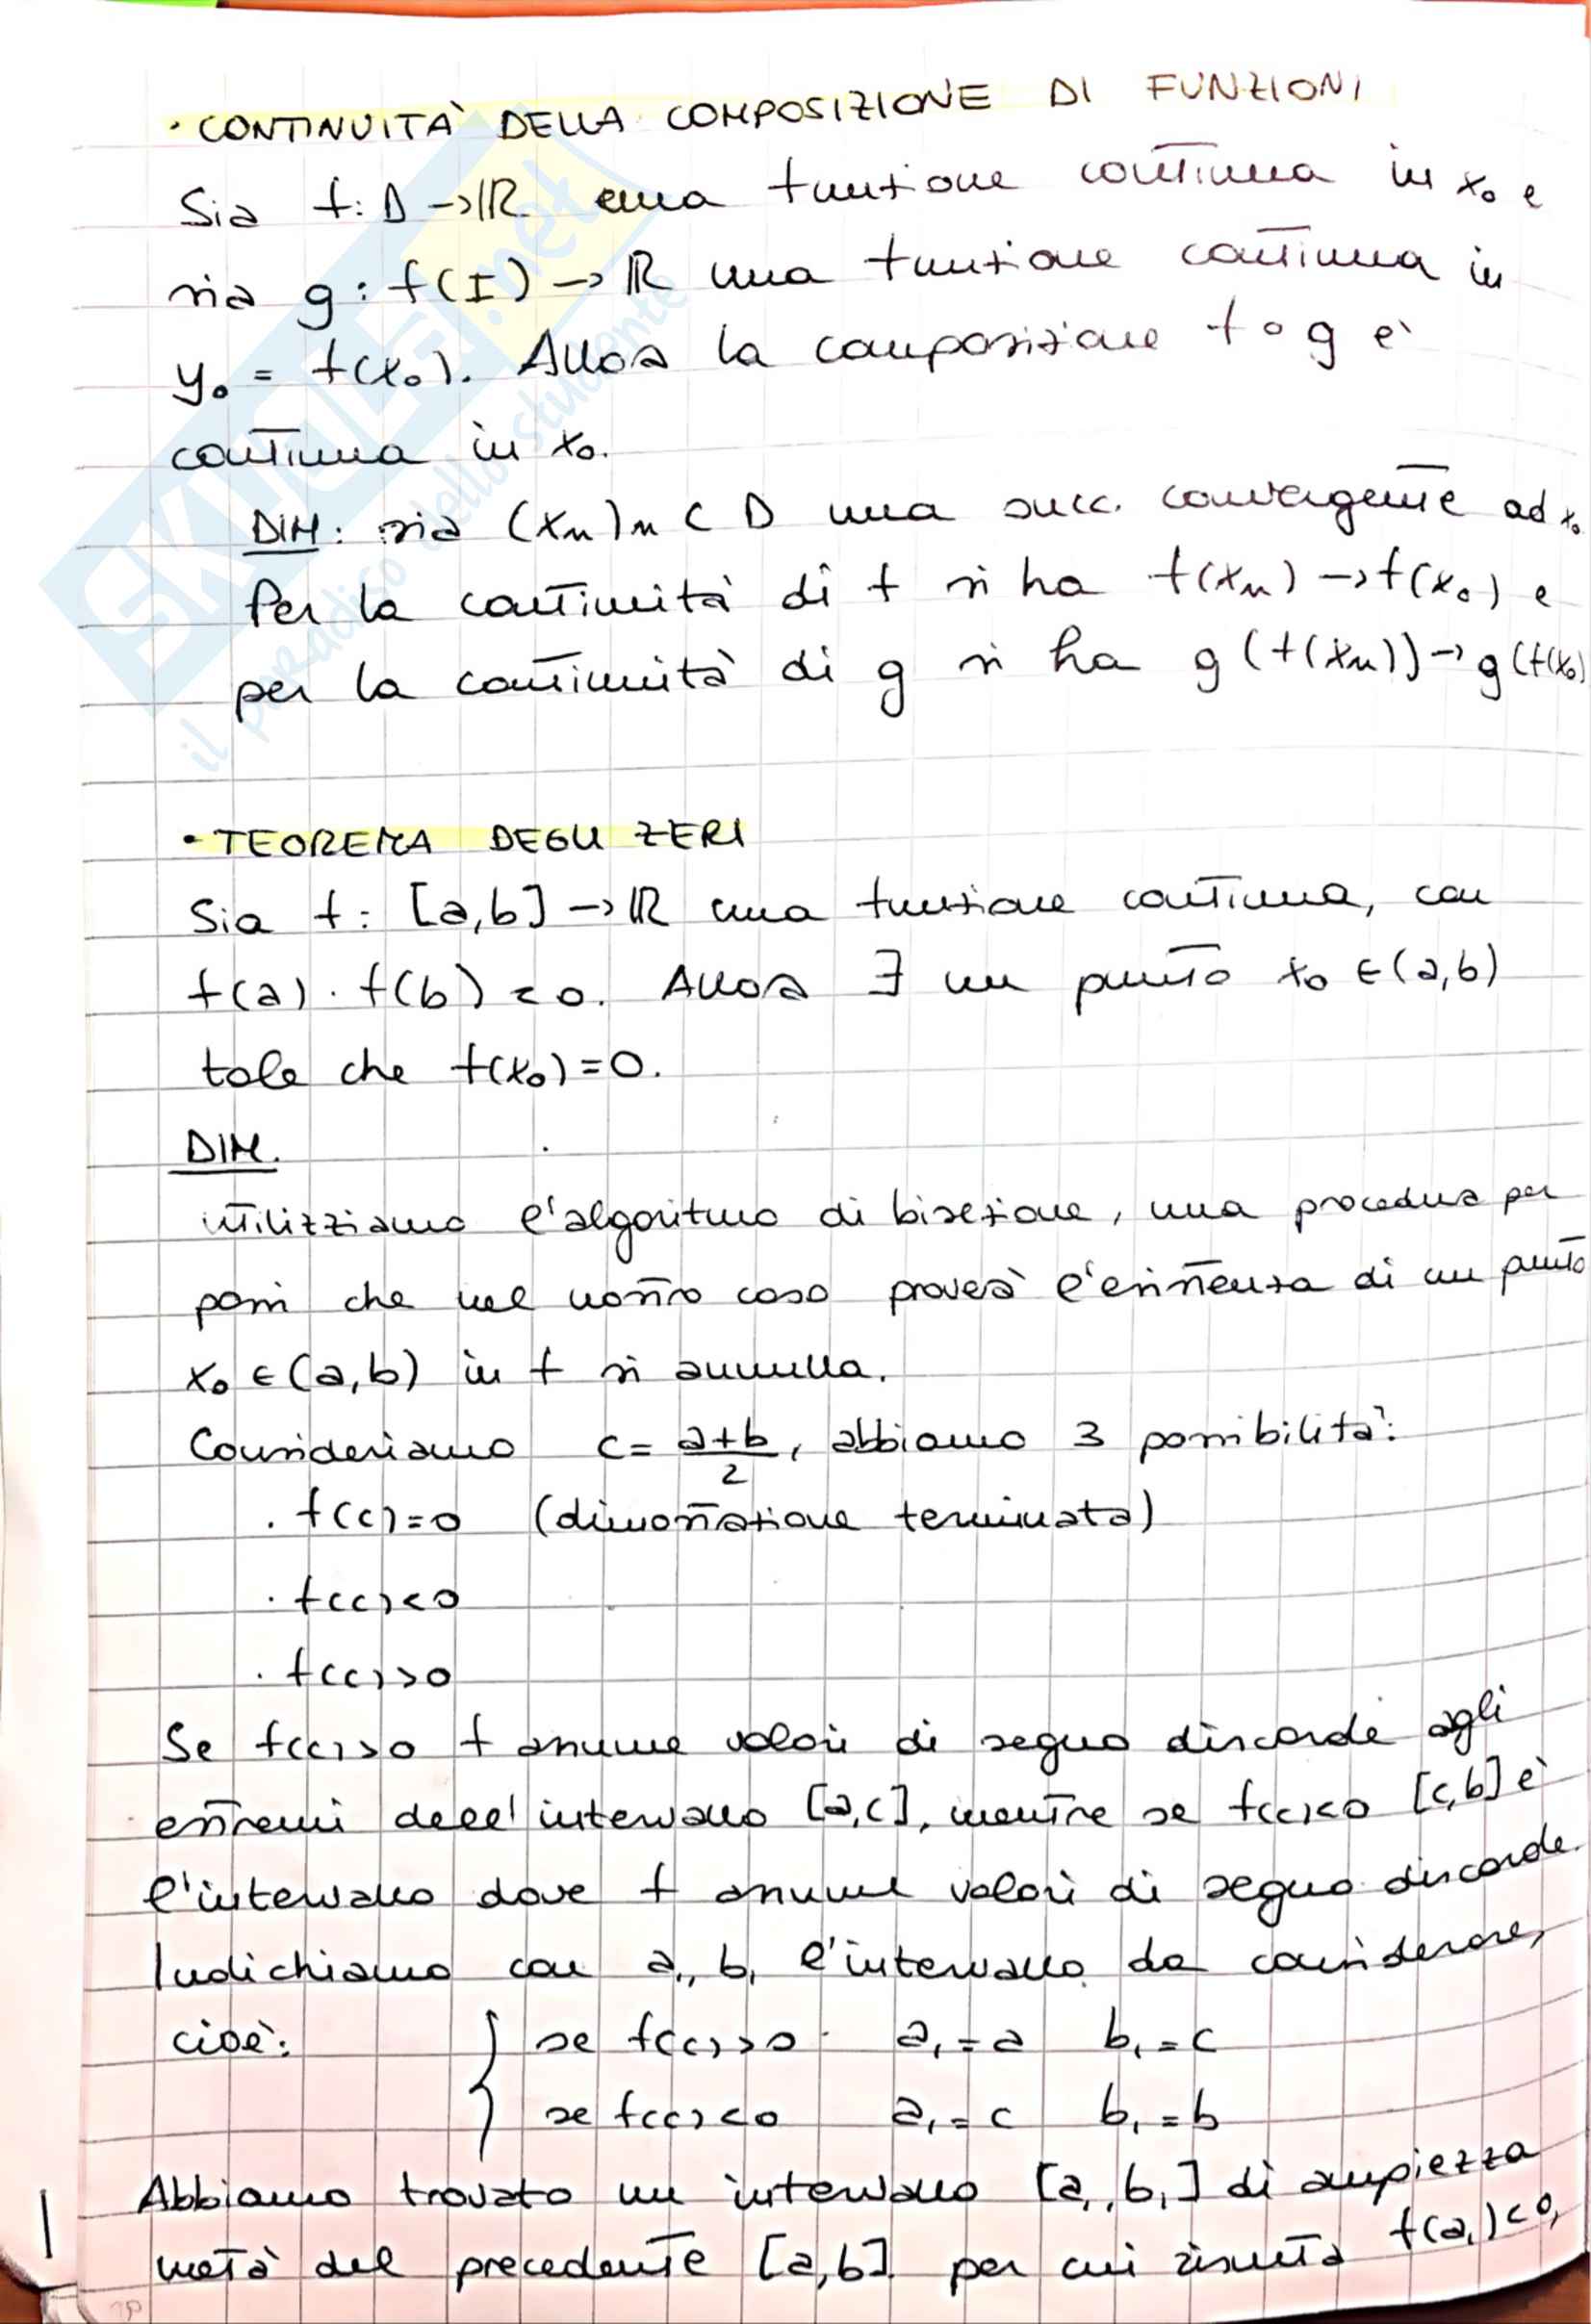 · CONTINUITÀ DELLA COMPOSIZIONE DI FUNZIONI
Sia f: D → ℝ una funzione continua in x₀ e
sia g: f(I) → ℝ una funzione continua in
y₀ = f(x₀). Allora la composizione f∘g è
continua in x₀.
DIM: sia (xₙ)ₙ ⊂ D una succ. convergente ad x₀
Per la continuità di f si ha f(xₙ) → f(x₀) e
per la continuità di g si ha g(f(xₙ)) → g(f(x₀)
· TEOREMA DEGLI ZERI
Sia f: [a,b] → ℝ una funzione continua, con
f(a) · f(b) < 0. Allora ∃ un punto x₀ ∈ (a,b)
tale che f(x₀)=0.
DIM.
utilizziamo l'algoritmo di bisezione, una procedura per
passi che nel nostro caso proverà l'esistenza di un punto
x₀ ∈ (a,b) in f si annulla.
Consideriamo c = (a+b)/2, abbiamo 3 possibilità:
· f(c)=0 (dimostrazione terminata)
· f(c)<0
· f(c)>0
Se f(c)>0 f assume valori di segno discorde agli
estremi dell'intervallo [a,c], mentre se f(c)<0 [c,b] è
l'intervallo dove f assume valori di segno discorde.
Indichiamo con a₁, b₁ l'intervallo da considerare,
cioè: { se f(c)>0 a₁=a b₁=c
se f(c)<0 a₁=c b₁=b
Abbiamo trovato un intervallo [a₁,b₁] di ampiezza
metà del precedente [a,b] per cui risulta f(a₁)<0,
1
SKUOLA.net
il paradiso dello studente